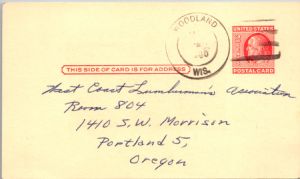 WOODLAND
WIS.
UNITED STATES
POSTAL CARD
THIS SIDE OF CARD IS FOR ADDRESS
West Coast Lumbermen's Association
Room 804
1410 S.W. Morrison
Portland 5,
Oregon